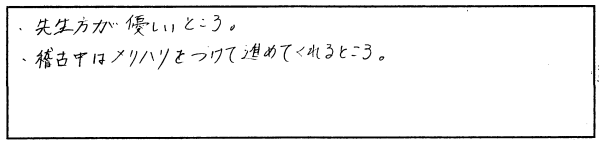 ・先生方が優しいところ。
・稽古中はメリハリをつけて進めてくれるところ。